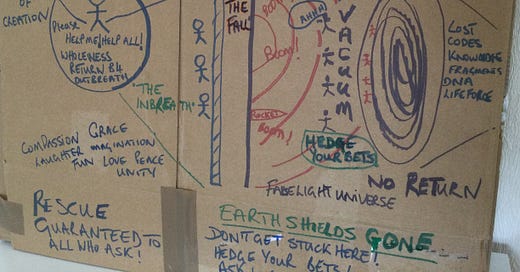 OF
CREATION
Please
HELP ME/HELP ALL!
WHOLENESS
RETURN B4
OUTBREATH
"THE
INBREATH"
COMPASSION GRACE
LAUGHTER IMAGINATION
FUN LOVE PEACE
UNITY
RESCUE
GUARANTEED TO
ALL WHO ASK!
THE
FALL
BOOM!
BOOM!
AHHH
VACUUM
HEDGE
YOUR BETS
LOST
CODES
KNOWLEDGE
FRAGMENTS
DNA
LIFEFORCE
NO RETURN
FALSELIGHT UNIVERSE
EARTH SHIELDS GONE
DON'T GET STUCK HERE!
HEDGE YOUR BETS!